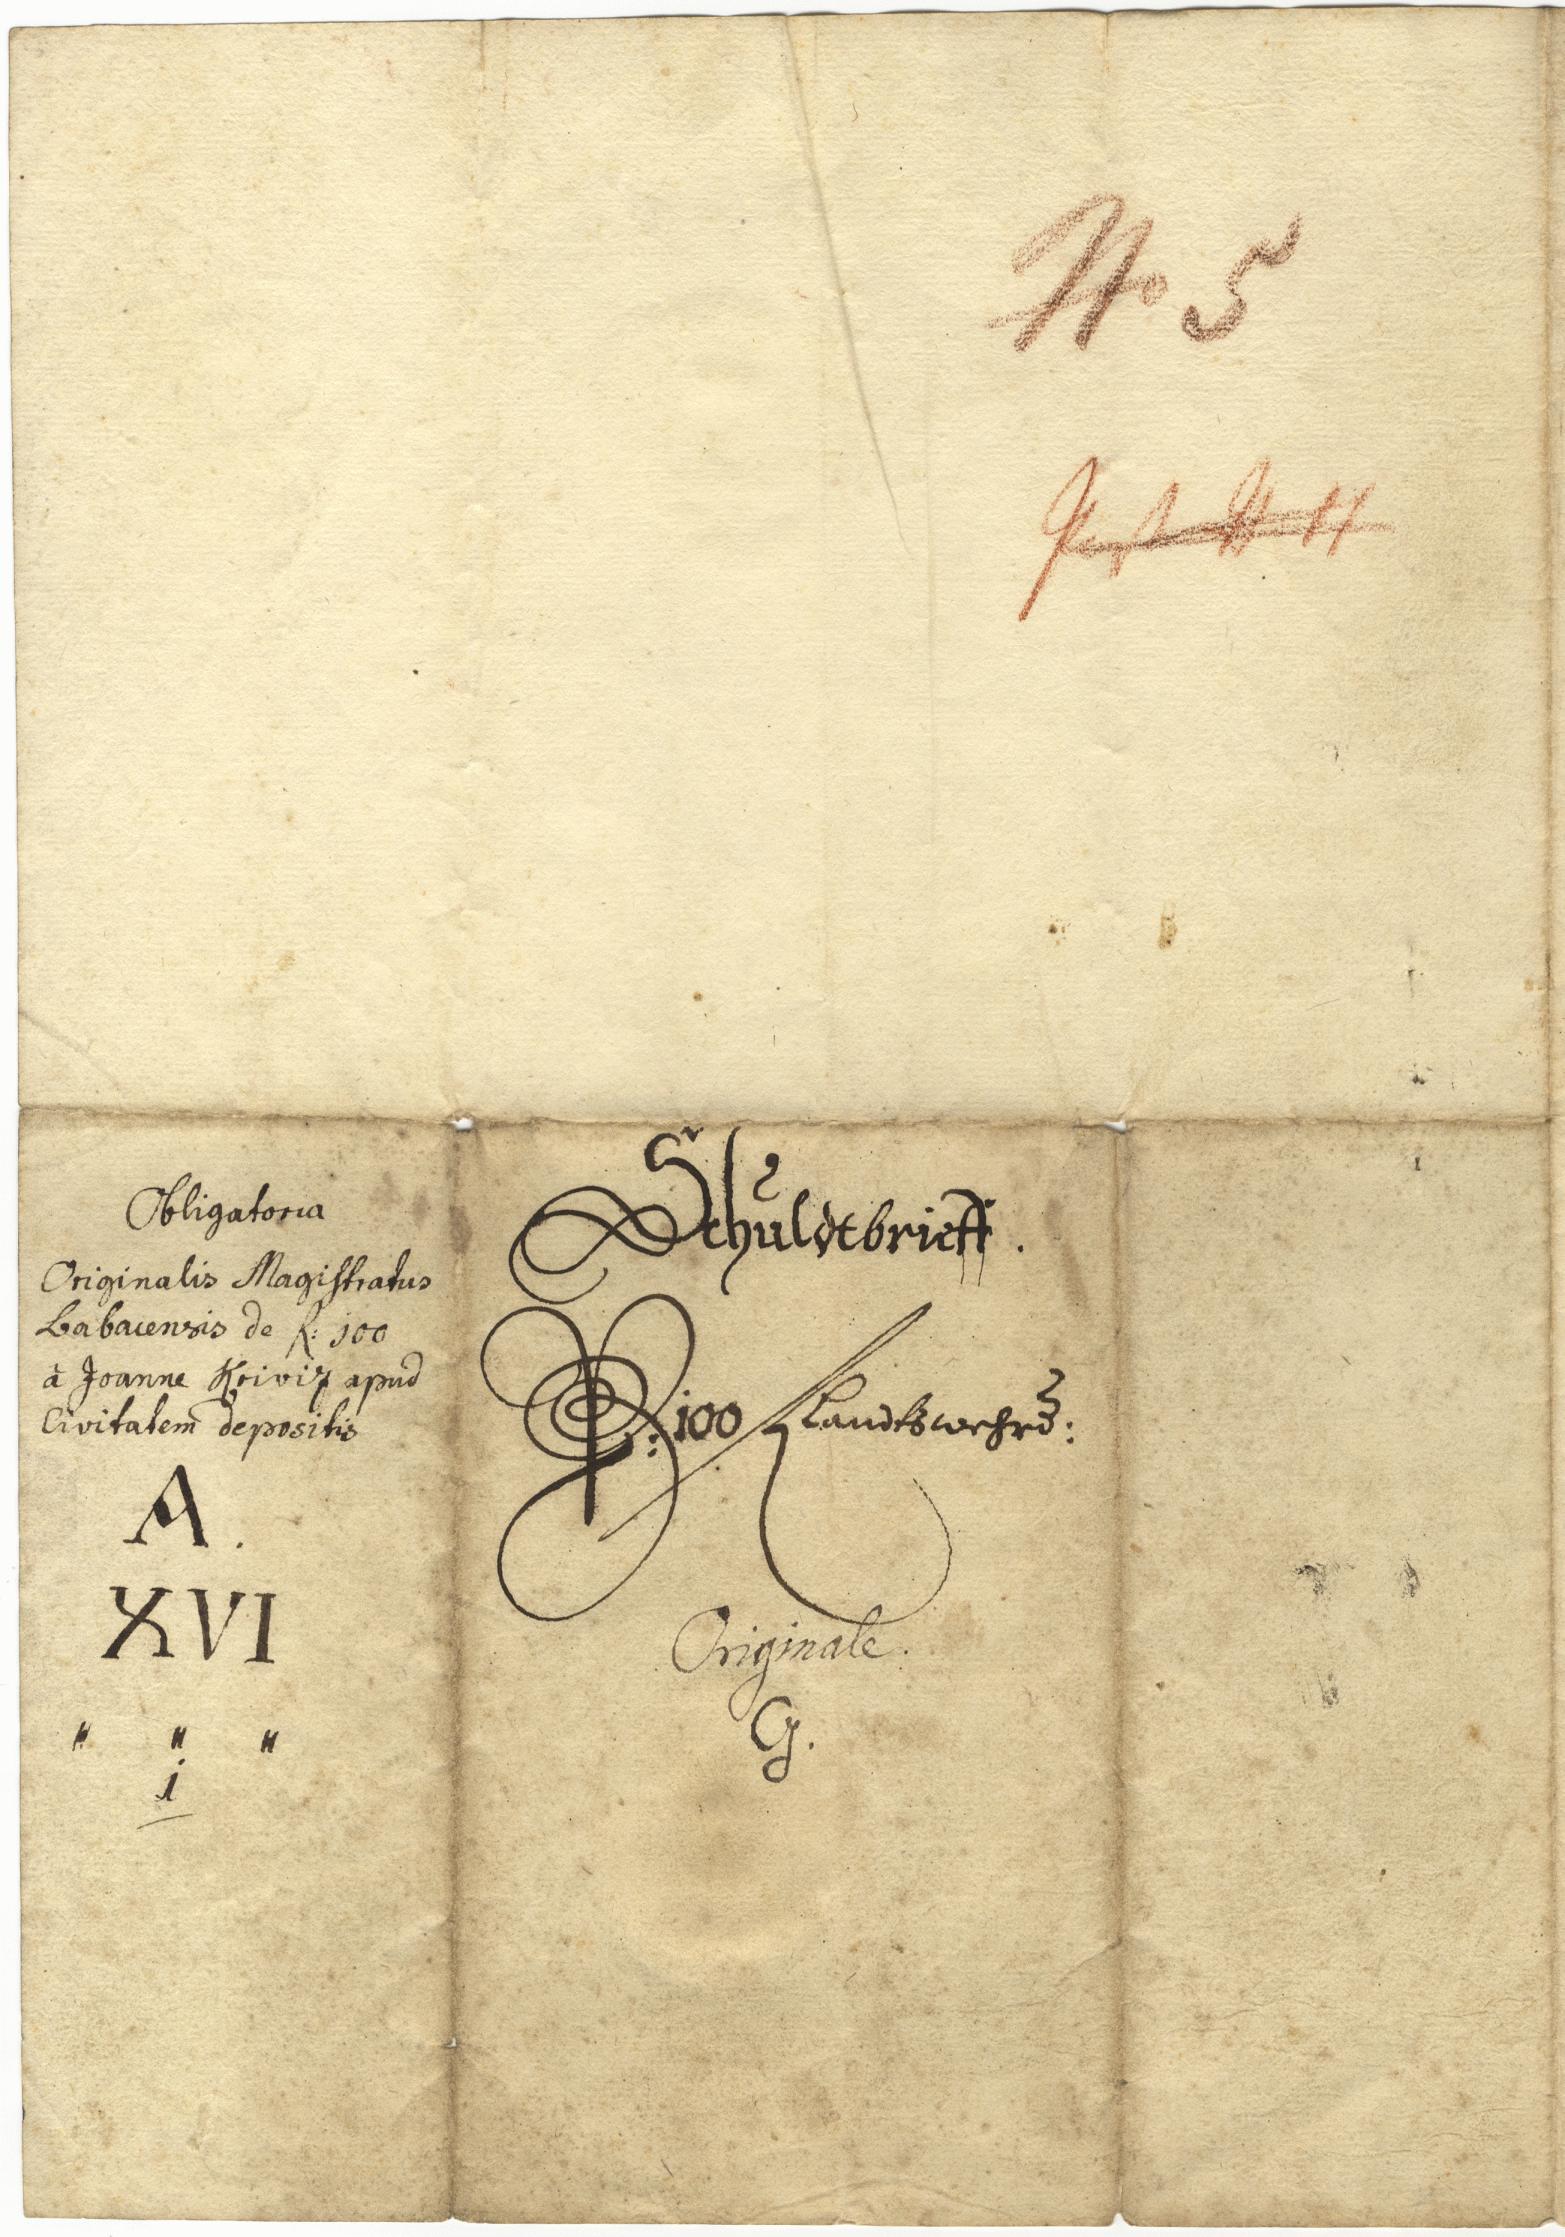 No 5
Obligatoria
Originalis Magistratus
Labacensis de R: 100
à Joanne Kriviz apud
Civitatem depositis
A.
XVI
" " "
i
Schuldtbrieff.
R: 100 Landtswehrd:
Originale.
G.